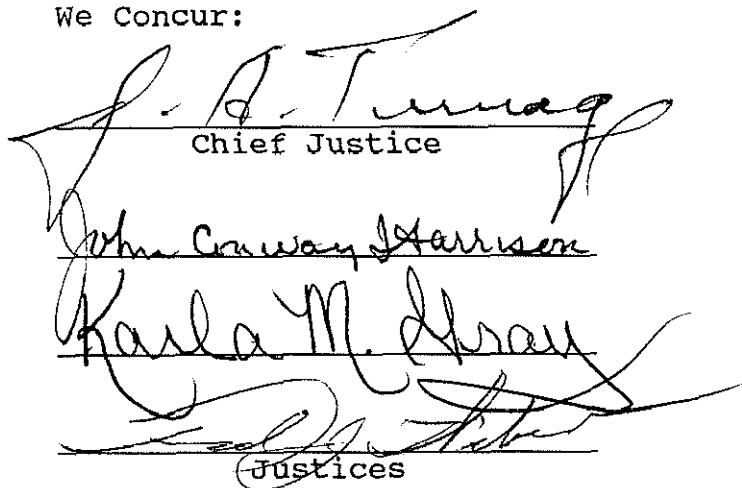 We Concur:
J. A. Turnage
Chief Justice
John Conway Harrison
Karla M. Gray
Justices